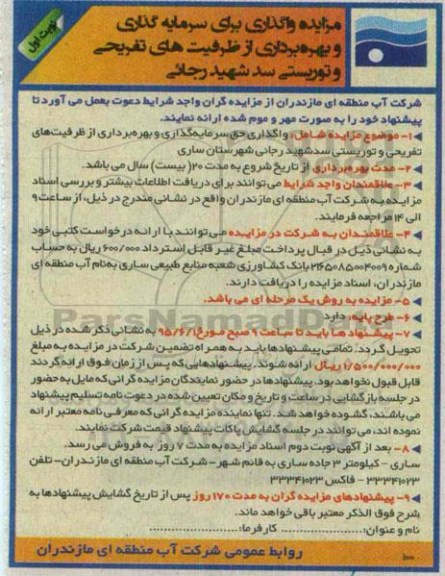 نوبت اول
مزایده واگذاری برای سرمایه گذاری
و بهره‌برداری از ظرفیت های تفریحی
و توریستی سد شهید رجائی
شرکت آب منطقه ای مازندران از مزایده گران واجد شرایط دعوت بعمل می آورد تا
پیشنهاد خود را به صورت مهر و موم شده ارائه نمایند.
۱- موضوع مزایده شامل: واگذاری حق سرمایه‌گذاری و بهره‌برداری از ظرفیت‌های
تفریحی و توریستی سد شهید رجائی شهرستان ساری
۲- مدت بهره‌برداری از تاریخ شروع به مدت ۲۰( بیست) سال می باشد.
۳- علاقمندان واجد شرایط می توانند برای دریافت اطلاعات بیشتر و بررسی اسناد
مزایده به شرکت آب منطقه ای مازندران واقع در نشانی مندرج در ذیل، از ساعت ۹
الی ۱۴ مراجعه فرمایند.
۴- علاقمندان به شرکت در مزایده می توانند با ارائه درخواست کتبی خود
به نشانی ذیل در قبال پرداخت مبلغ غیر قابل استرداد ۶۰۰/۰۰۰ ریال به حساب
شماره بانک کشاورزی شعبه منابع طبیعی ساری به‌نام آب منطقه ای
مازندران، اسناد مزایده را دریافت دارند.
۵- مزایده به روش یک مرحله ای می باشد.
۶- طرح پایه: دارد
ParsNamadData
۷- پیشنهادها باید تا ساعت ۹ صبح مورخ ۹۵/۶/۱ به نشانی ذکر شده در ذیل
تحویل گردد. تمامی پیشنهادها باید به همراه تضمین شرکت در مزایده به مبلغ
۱/۵۰۰/۰۰۰/۰۰۰ ریال ارائه شوند. پیشنهادهایی که پس از زمان فوق ارائه گردند
قابل قبول نخواهد بود. پیشنهادها در حضور نمایندگان مزایده گرانی که مایل به حضور
در جلسه بازگشایی در ساعت و تاریخ و مکان تعیین شده در دعوت نامه تسلیم پیشنهاد
می باشند، گشوده خواهد شد. تنها نماینده مزایده گرانی که معرفی نامه معتبر ارائه
نموده اند، می توانند در جلسه گشایش پاکات پیشنهاد قیمت شرکت نمایند.
۸- بعد از آگهی نوبت دوم اسناد مزایده به مدت ۷ روز به فروش می رسد.
ساری - کیلومتر ۳ جاده ساری به قائم شهر - شرکت آب منطقه ای مازندران - تلفن
۳۳۳۴۱۰۲۳ - فاکس ۳۳۳۴۱۰۲۳
۹- پیشنهادهای مزایده گران به مدت ۱۷۰ روز پس از تاریخ گشایش پیشنهادها به
شرح فوق الذکر معتبر باقی خواهد ماند.
نام و عنوان: .................... کارفرما: ....................
روابط عمومی شرکت آب منطقه ای مازندران